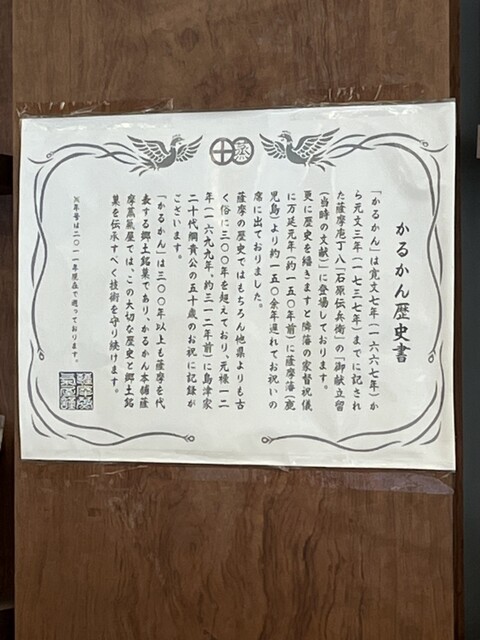 蒸
かるかん歴史書
「かるかん」は寛文七年(一六六七年)か
ら元文三年(一七三七年)までに記され
た薩摩庖丁八「石原伝兵衛」の「御献立留
(当時の文献)」に登場しております。
更に歴史を繙きますと隣藩の家督祝儀
に万延元年(約一五〇年前)に薩摩藩(鹿
児島)より約一五〇余年遅れてお祝いの
席に出ておりました。
薩摩の歴史ではもちろん他県よりも古
く俗に三〇〇年を超えており、元禄一二
年(一六九九年、約三一二年前)に島津家
二十代綱貴公の五十歳のお祝に記録が
ございます。
「かるかん」は三〇〇年以上も薩摩を代
表する郷土銘菓であり、かるかん本舗薩
摩蒸氣屋では、この大切な歴史と郷土銘
菓を伝承すべく技術を守り続けます。
※年号は二〇一一年現在で遡っております。